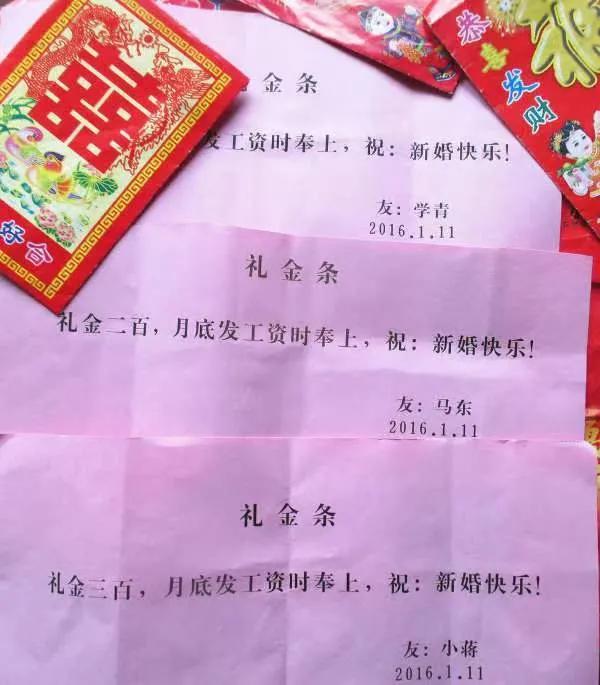 囍
好合
恭喜发财
礼金条
发工资时奉上，祝：新婚快乐！
友：学青
2016.1.11
礼金条
礼金二百，月底发工资时奉上，祝：新婚快乐！
友：马东
2016.1.11
礼金条
礼金三百，月底发工资时奉上，祝：新婚快乐！
友：小蒋
2016.1.11